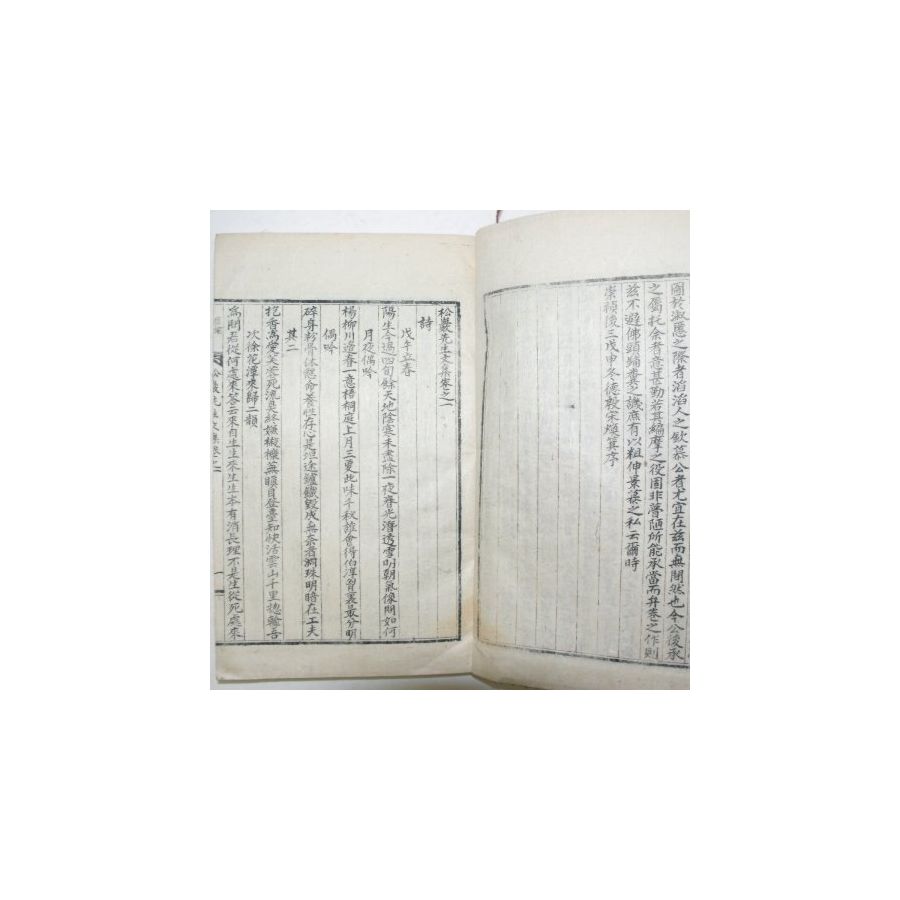 圖於淑慝之際者滔滔人之欽慕公者尤宜在玆而無間然也今公後承
之屬托余者意甚勤若其編摩之役固非謭陋所能承當而弁卷之作則
玆不避佛頭鋪糞之譏庶有以粗伸景慕之私云爾時
崇禎後三戊申冬德殷宋煃箕序
松巖先生文集卷之一
詩
戊午立春
陽生今過四旬餘天地陰寒未盡除一夜春光潛透雪明朝氣像問如何
月夜偶吟
楊柳川邊春一意梧桐庭上月三更此味千秋誰會得伯淳胷裏最分明
偶吟
碎身粉骨缽慈命養性存心是坦途鑪鐵毀成無奈者洞珠明暗在工夫
其二
抱香高愛芙蓉死流臭終嫌樧樧蕪瞑目登臺知快活雲山千里摠輸吾
次徐花潭來歸二韻
爲問君從何處來答云來自生生來生生本有消長理不是生從死處來
松巖先生文集卷之一
一